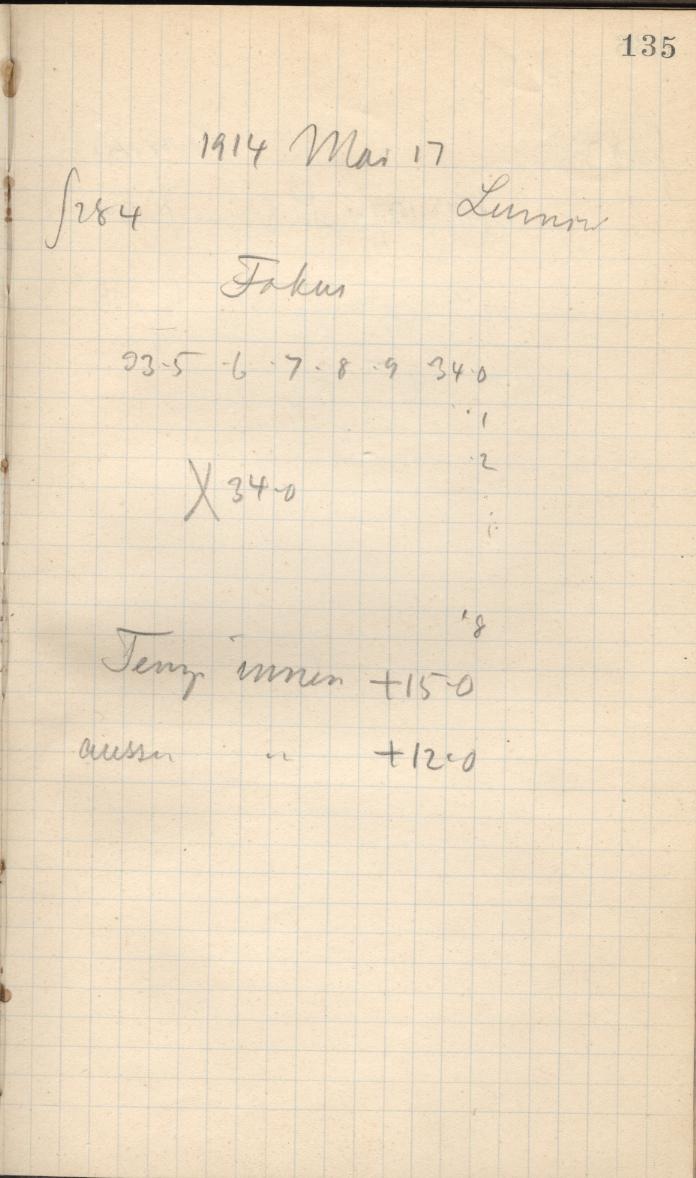 135
1914 Mai 17
∫284 Lumière
Fokus
33.5 .6 .7 .8 .9 34.0
.1
.2
X 34.0
.8
Temp innen +15.0
aussen " +12.0